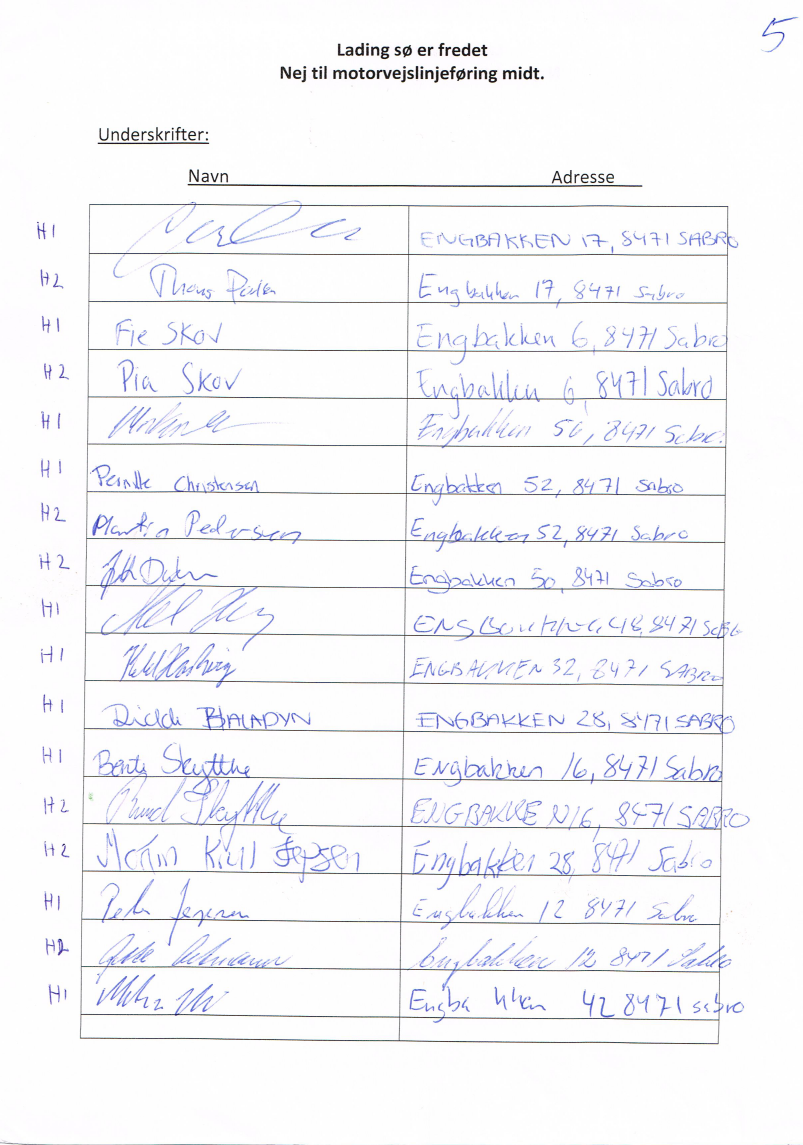 5
Lading sø er fredet
Nej til motorvejslinjeføring midt.
Underskrifter:
Navn Adresse
H1 ENGBAKKEN 17, 8471 SABRO
H2 Engbakken 17, 8471 Sabro
H1 Fie Skov Engbakken 6, 8471 Sabro
H2 Pia Skov Engbakken 6, 8471 Sabro
H1 Engbakken 8471 Sabro
H1 Pernille Christensen Engbakken 52, 8471 Sabro
H2 Martin Pedersen Engbakken 52, 8471 Sabro
H2 Engbakken 50, 8471 Sabro
H1 48, 8471 Sabro
H1 ENGBAKKEN 32, 8471 SABRO
H1 ENGBAKKEN 28, 8471 SABRO
H1 Bente Skytthe Engbakken 16, 8471 Sabro
H2 Skytthe ENGBAKKEN 16, 8471 SABRO
H2 Engbakken 28, 8471 Sabro
H1 Engbakken 12 8471 Sabro
H2 Engbakken 12 8471 Sabro
H1 Engbakken 42 8471 sabro